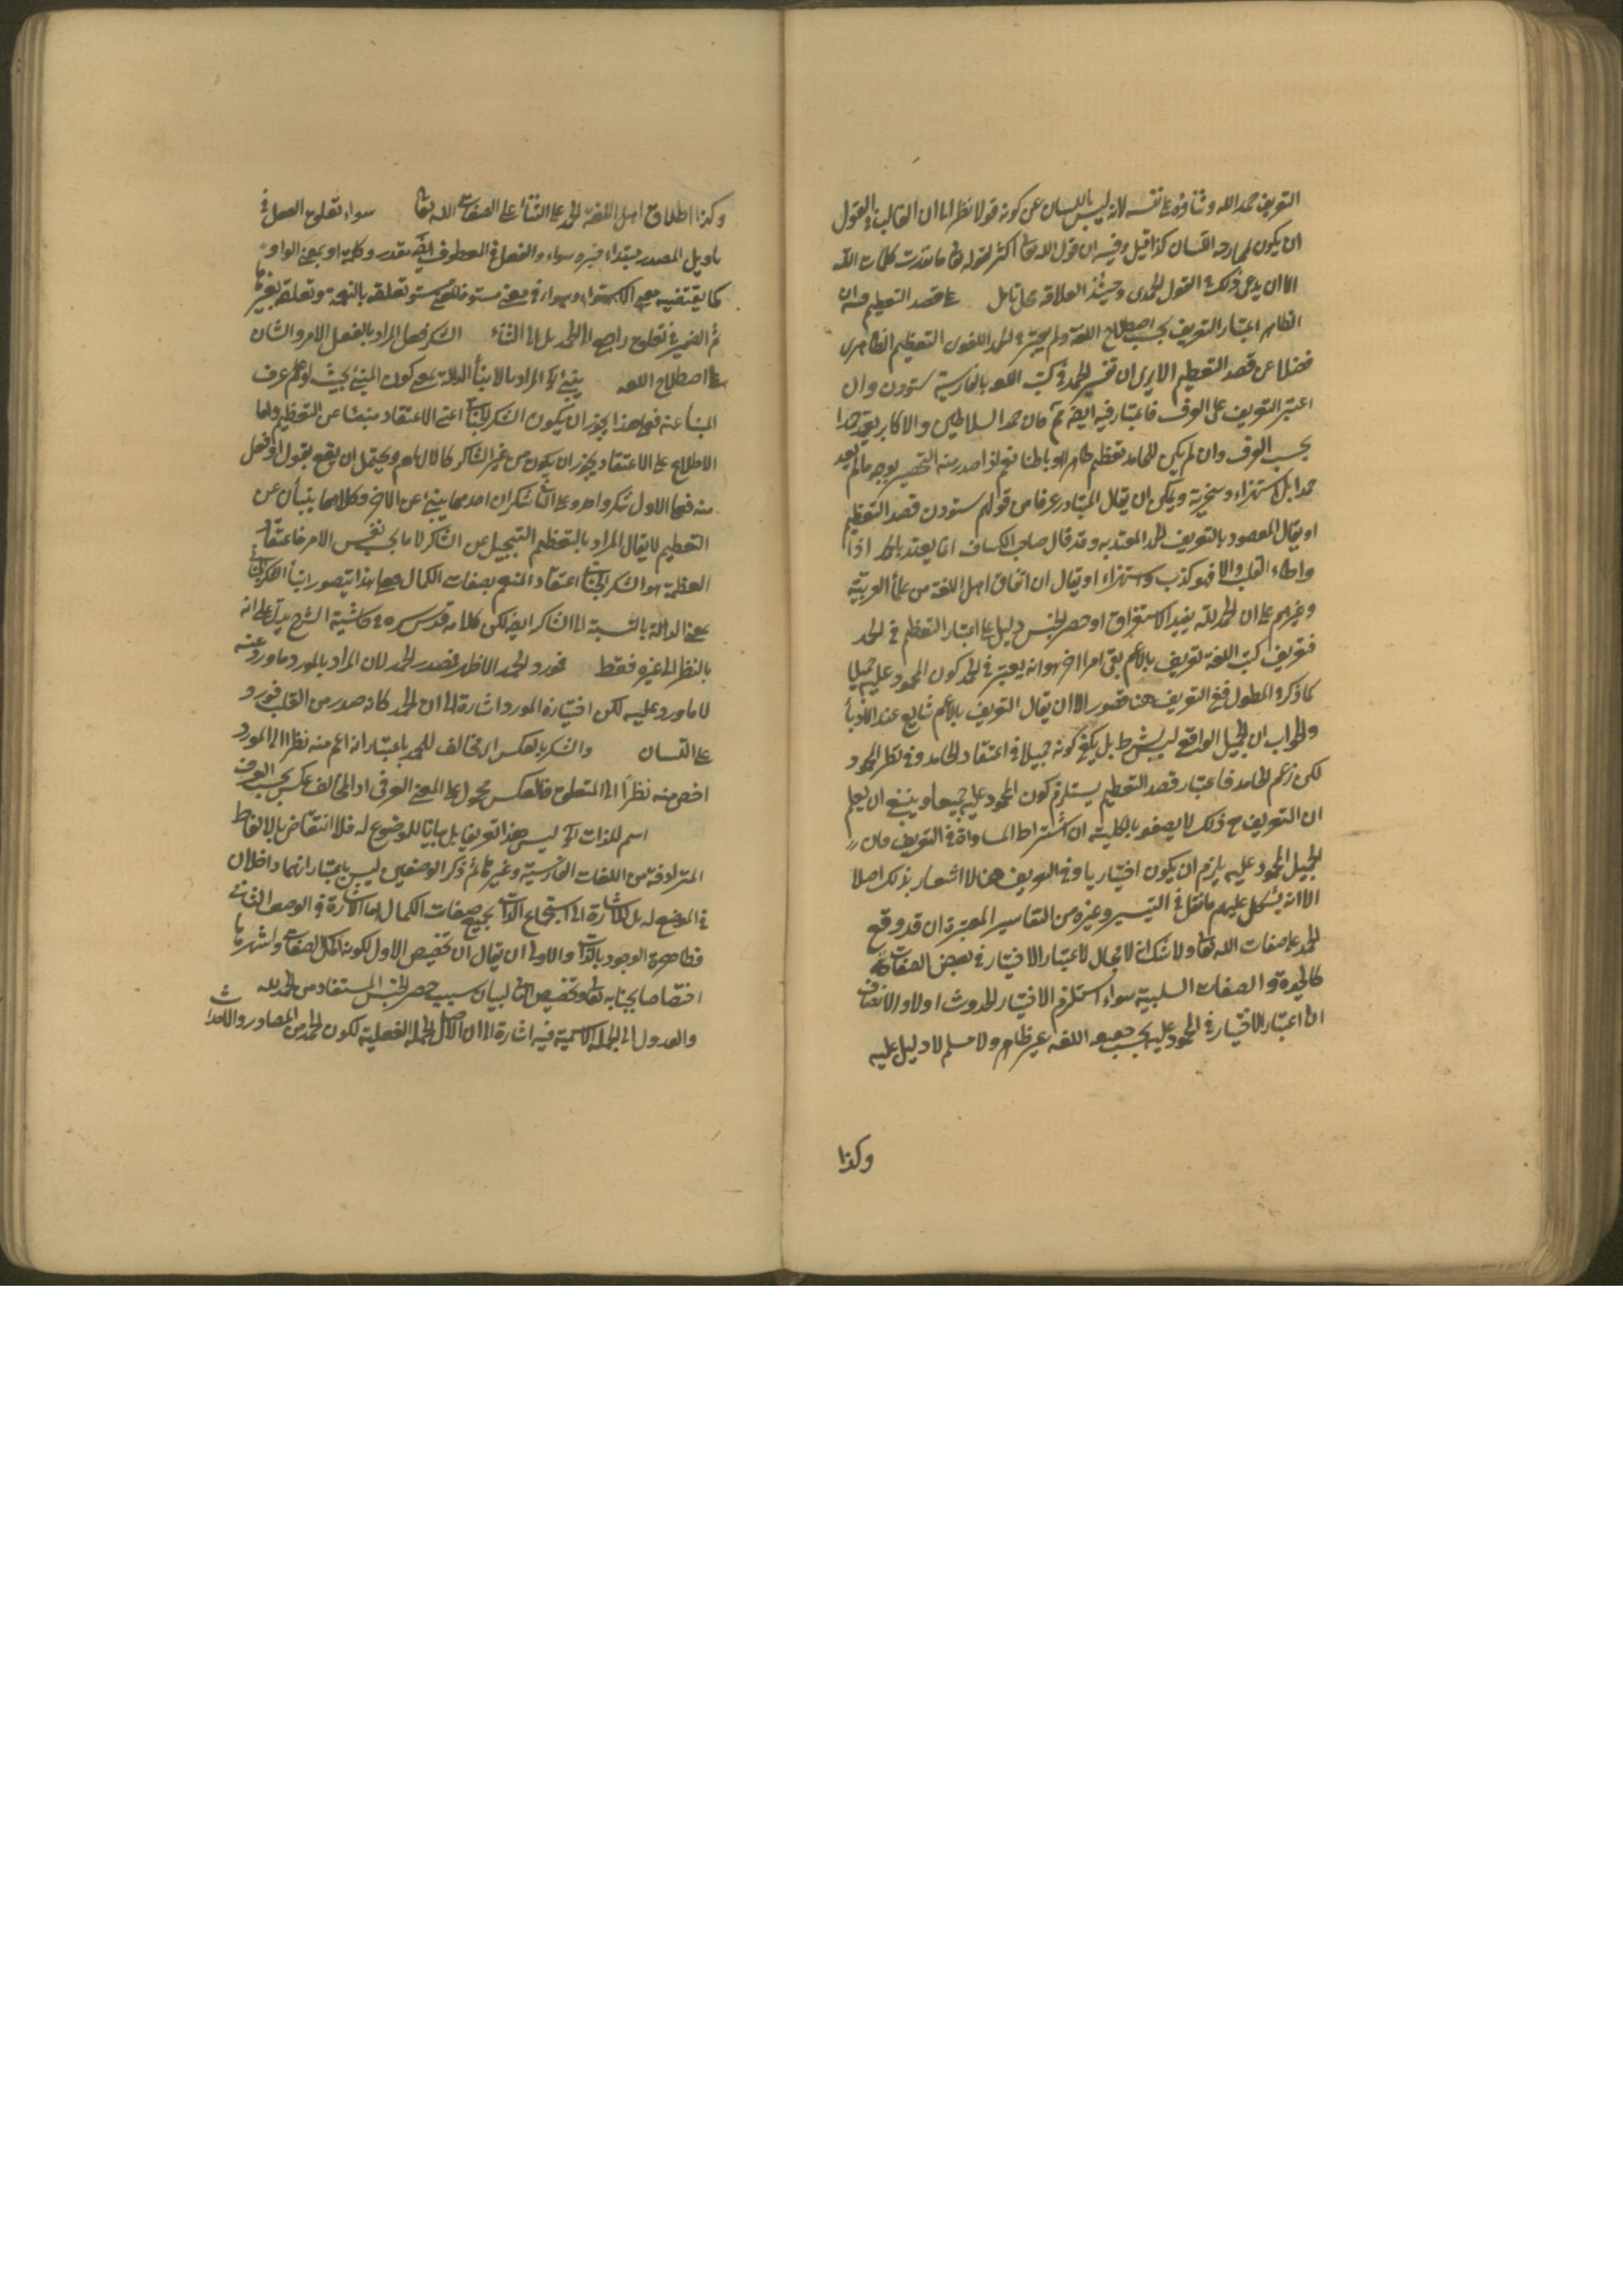 التعريف حمد الله وثناؤه على نفسه لانه ليس باللسان عن كونه قولا نظرا الى ان الغالب في القول
ان يكون بجارحة اللسان كذا قيل وفيه ان قول الله تعالى اكثر لقوله تعالى ما نفدت كلمات الله
الا ان يدعى ذلك في القول الحمدى وحينئذ العلاقة محل تامل على قصد التعظيم فيه ان
الظاهر اعتبار التعريف بحسب اصطلاح اللغة ولم يعتبر في الحمد اللغوى التعظيم الظاهرى
فضلا عن قصد التعظيم الا يرى ان تفسير الحمد في كتب اللغة بالفارسية ستودن وان
اعتبر التعريف على العرف فاعتباره فيه ايضا ثم فان حمد السلاطين والاكابر يعد حمدا
بحسب العرف وان لم يكن للحامد تعظيم ظاهرا وباطنا نعم لو اصدر منه التحقير بوجه ما لم يعد
حمدا بل استهزاء وسخرية ويمكن ان يقال المتبادر عرفا من قولهم ستودن قصد التعظيم
او يقال المقصود بالتعريف الحمد المعتد به وقد قال صاحب الكشاف انما يعتد بالحمد اذا
واطاء القلب والا فهو كذب واستهزاء او يقال ان اتفاق اهل اللغة من علماء العربية
وغيرهم على ان الحمد لله يفيد الاستغراق او حصر الجنس دليل على اعتبار التعظيم في الحمد
فتعريف كتب اللغة تعريف بالاعم بقى امر اخر هو انه يعتبر في الحمد كون المحمود عليه جميلا
كما ذكره في المطول ففى التعريف هنا قصور الا ان يقال التعريف بالاعم شايع عند الادباء
والجواب ان الجميل الواقع ليس بشرط بل يكفى كونه جميلا في اعتقاد الحامد وفي نظر المحمود
لكن زعم الحامد فاعتبار قصد التعظيم يستلزم كون المحمود عليه جميلا وينبغى ان يعلم
ان التعريف مع ذلك لا يصفو بالكلية ان اشتراط المساواة في التعريف فان
الجميل المحمود عليه يلزم ان يكون اختياريا وفي التعريف هنا لا اشعار بذلك اصلا
الا انه يشكل عليهم ما نقل في التيسير وغيره من التفاسير المعتبرة ان قد وقع
الحمد على صفات الله تعالى ولا شك انه لا مجال لاعتبار الاختيار في بعض الصفات
كالحيوة والصفات السلبية سواء استلزم الاختيار الحدوث اولا والانصاف
ان اعتبار الاختيار في المحمود عليه بحسب اللغة غير ظاهر ولا مسلم لا دليل عليه
وكذا
وكذا اطلاق اهل اللغة الحمد على الثناء على الصفات الله تعالى سواء تعلق الفعل في
تاويل المصدر مبتداء خبره سواء والفعل في المعطوف ايضا مقدر وكلمة او بمعنى الواو
كما يقتضيه معنى الاستواء وسواء في معنى مستو فالمعنى مستو تعلقه بالنعمة وتعلقه بغيرها
ثم الضمير في تعلق راجع الى الحمد بل الى الثناء الشكر فعل المراد بالفعل الامر والشان
على اصطلاح اللغة ينبئ الخ المراد بالانباء الدلالة بمعنى كون المنبئ بحيث لو علم عرف
المنبأ عنه فعلى هذا يجوز ان يكون الشكر الجنانى اعنى الاعتقاد منبئا عن التعظيم واما
الاطلاع على الاعتقاد يجوز ان يكون من غير الشاكر كالالهام ويحتمل ان يقع بقول او فعل
منه فعلى الاول شكر واحد وعلى الثانى شكران احدهما ينبئ عن الاخر وكلاهما ينبأن عن
التعظيم لا يقال المراد بالتعظيم التبجيل عن الشاكر لا ما بحسب نفس الامر فاعتقاد
العظمة هو الشكر الجنانى اعتقاد المنعم بصفات الكمال فعلى هذا يتصور انباء الشكر الجنانى
بمعنى الدلالة بالنسبة الى الشاكر ايضا لكن كلامه قدس سره في حاشية الشرح يدل على انه
بالنظر الى غيره فقط فمورد الحمد الاظهر فمصدر الحمد لان المراد بالمورد ما ورد عنه
لا ما ورد عليه لكن اختياره المورد اشارة الى ان الحمد كانه صدر من القلب فورد
على اللسان والشكر بالعكس اى مخالف للحمد باعتبار انه اعم منه نظرا الى المورد
اخص منه نظرا الى المتعلق فالعكس محمول على المعنى العرفى اذ المخالف عكس بحسب العرف
اسم للذات الخ ليس هذا تعريفا بل بيانا للموضوع له فلا انتقاض بالالفاظ
المترادفة من اللغات الفارسية وغيرها ثم ذكر الوصفين ليس باعتبار انهما داخلان
في الموضوع له بل للاشارة الى استجماع الذات بجميع صفات الكمال اما الاشارة في الوصف الثانى
فظاهرة الوجود بالذات والاولى ان يقال ان تخصيص الاول لكونه اكمل الصفات واشهرها
اختصاصا بجنابه تعالى وتخصيص الثانى لبيان سبب حصر الجنس المستفاد من الحمد لله
والعدول الى الجملة الاسمية فيه اشارة الى ان الاصل الجملة الفعلية لكون الحمد من المصادر والاحداث